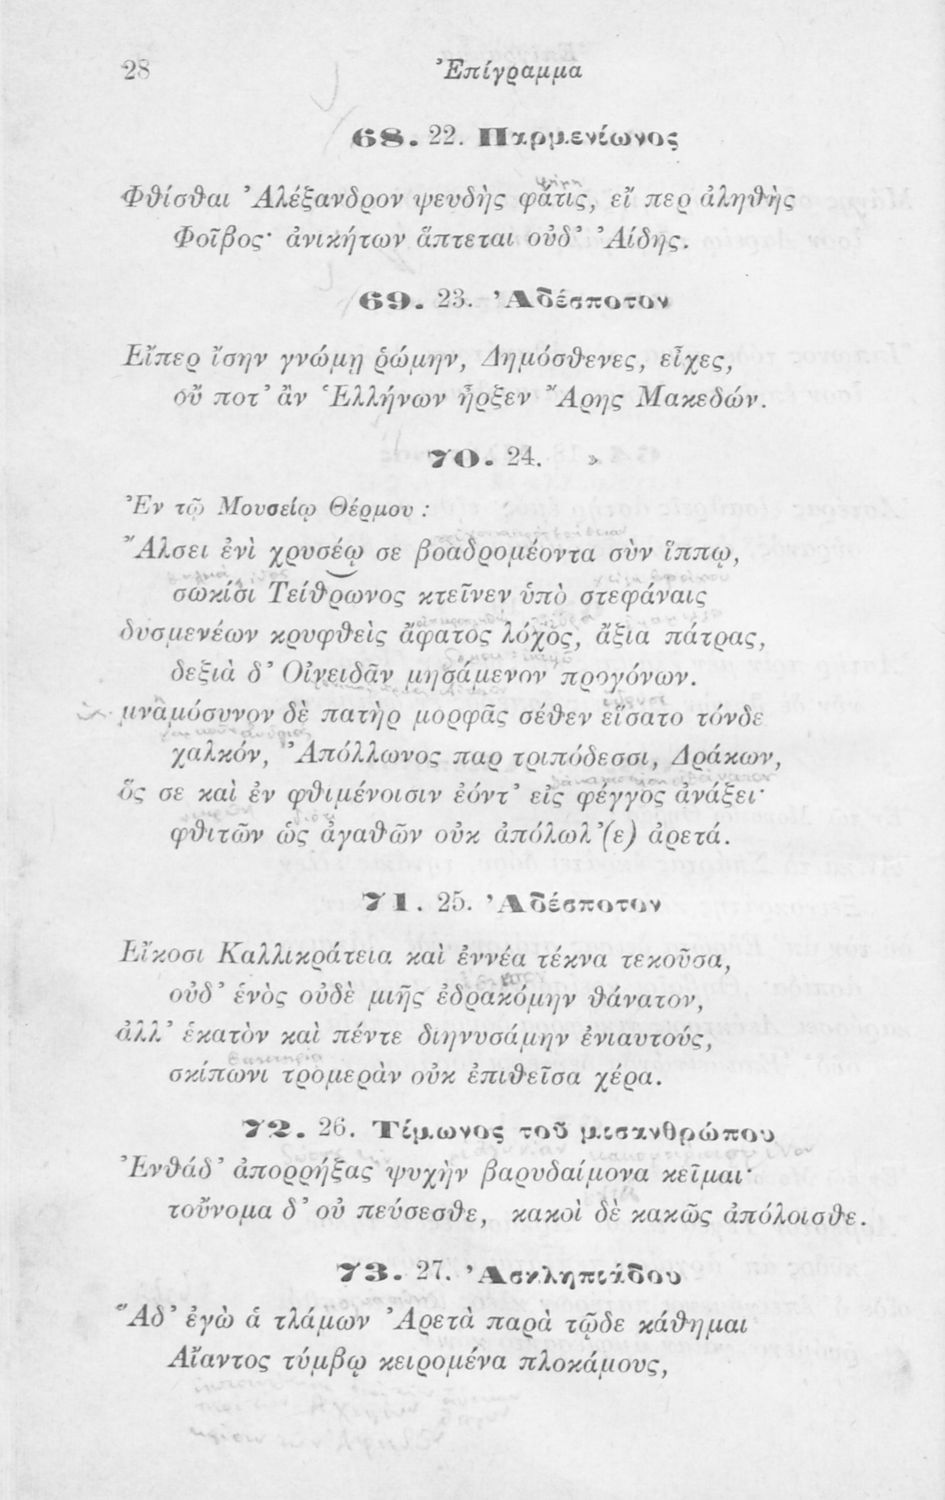 28
Ἐπίγραμμα
68. 22. Παρμενίωνος
Φθίσθαι Ἀλέξανδρον ψευδὴς φάτις, εἴ περ ἀληθὴς
Φοῖβος· ἀνικήτων ἅπτεται οὐδ’ Ἀίδης.
69. 23. Ἀδέσποτον
Εἴπερ ἴσην γνώμῃ ῥώμην, Δημόσθενες, εἶχες,
οὔ ποτ’ ἂν Ἑλλήνων ἦρξεν Ἄρης Μακεδών.
70. 24. »
Ἐν τῷ Μουσείῳ Θέρμου :
Ἄλσει ἐνὶ χρυσέῳ σε βοαδρομέοντα σὺν ἵππῳ,
σωκίδι Τείθρωνος κτεῖνεν ὑπὸ στεφάναις
δυσμενέων κρυφθεὶς ἄφατος λόχος, ἄξια πάτρας,
δεξιὰ δ’ Οἰνειδᾶν μησάμενον προγόνων.
μνᾱμόσυνον δὲ πατὴρ μορφᾶς σέθεν εἵσατο τόνδε
χαλκόν, Ἀπόλλωνος παρ τριπόδεσσι, Δράκων,
ὅς σε καὶ ἐν φθιμένοισιν ἐόντ’ εἰς φέγγος ἀνάξει·
φθιτῶν ὡς ἀγαθῶν οὐκ ἀπόλωλ’(ε) ἀρετά.
71. 25. Ἀδέσποτον
Εἴκοσι Καλλικράτεια καὶ ἐννέα τέκνα τεκοῦσα,
οὐδ’ ἑνὸς οὐδὲ μιῆς ἐδρακόμην θάνατον,
ἀλλ’ ἑκατὸν καὶ πέντε διηνυσάμην ἐνιαυτούς,
σκίπωνι τρομερὰν οὐκ ἐπιθεῖσα χέρα.
72. 26. Τίμωνος τοῦ μισανθρώπου
Ἐνθάδ’ ἀπορρήξας ψυχὴν βαρυδαίμονα κεῖμαι·
τοὔνομα δ’ οὐ πεύσεσθε, κακοὶ δὲ κακῶς ἀπόλοισθε.
73. 27. Ἀσκληπιάδου
Ἅδ’ ἐγὼ ἁ τλάμων Ἀρετὰ παρὰ τῷδε κάθημαι
Αἴαντος τύμβῳ κειρομένα πλοκάμους,